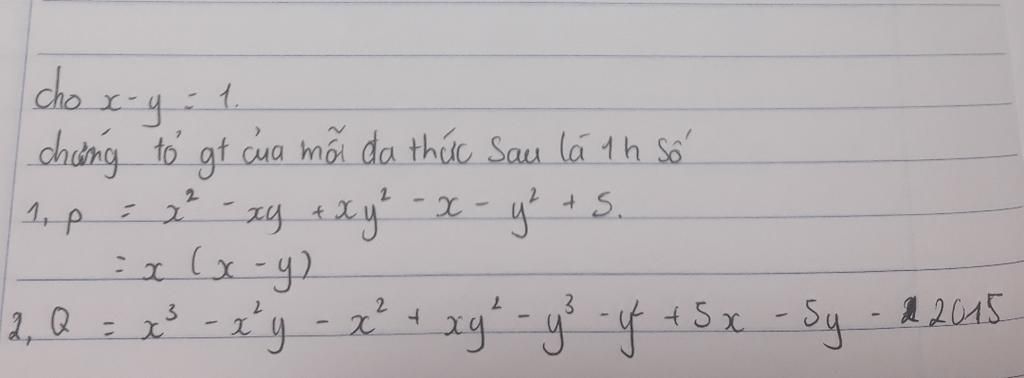 cho x - y = 1.
chứng tỏ gt của mỗi đa thức sau là 1 h số
1, p = x² - xy + xy² - x - y² + 5.
= x (x - y)
2, Q = x³ - x²y - x² + xy² - y³ - y² + 5x - 5y - 2015